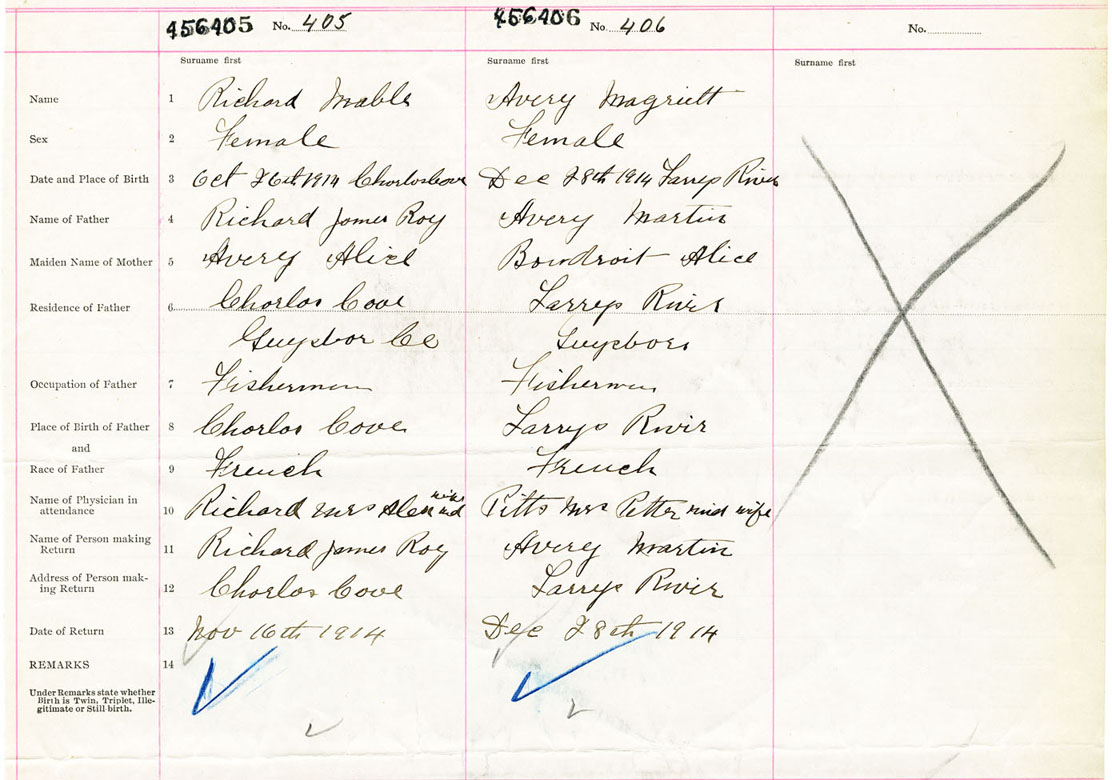 456405 No. 405 456406 No. 406 No.
Surname first Surname first Surname first
Name 1 Richard Mable Avery Magriett
Sex 2 Female Female
Date and Place of Birth 3 Oct 26th 1914 Charlos Cove Dec 28th 1914 Larrys River
Name of Father 4 Richard James Roy Avery Martin
Maiden Name of Mother 5 Avery Alice Boudroit Alice
Residence of Father 6 Charlos Cove Larrys Rivir
Guysbor Co Guysboro
Occupation of Father 7 Fisherman Fisherman
Place of Birth of Father 8 Charlos Cove Larrys Rivir
and
Race of Father 9 French French
Name of Physician in
attendance 10 Richard Mrs Pitts Mrs Petter mid wife
Name of Person making
Return 11 Richard James Roy Avery Martin
Address of Person mak-
ing Return 12 Charlos Cove Larrys Rivir
Date of Return 13 Nov 16th 1914 Dec 28th 1914
REMARKS 14
Under Remarks state whether
Birth is Twin, Triplet, Ille-
gitimate or Still birth.